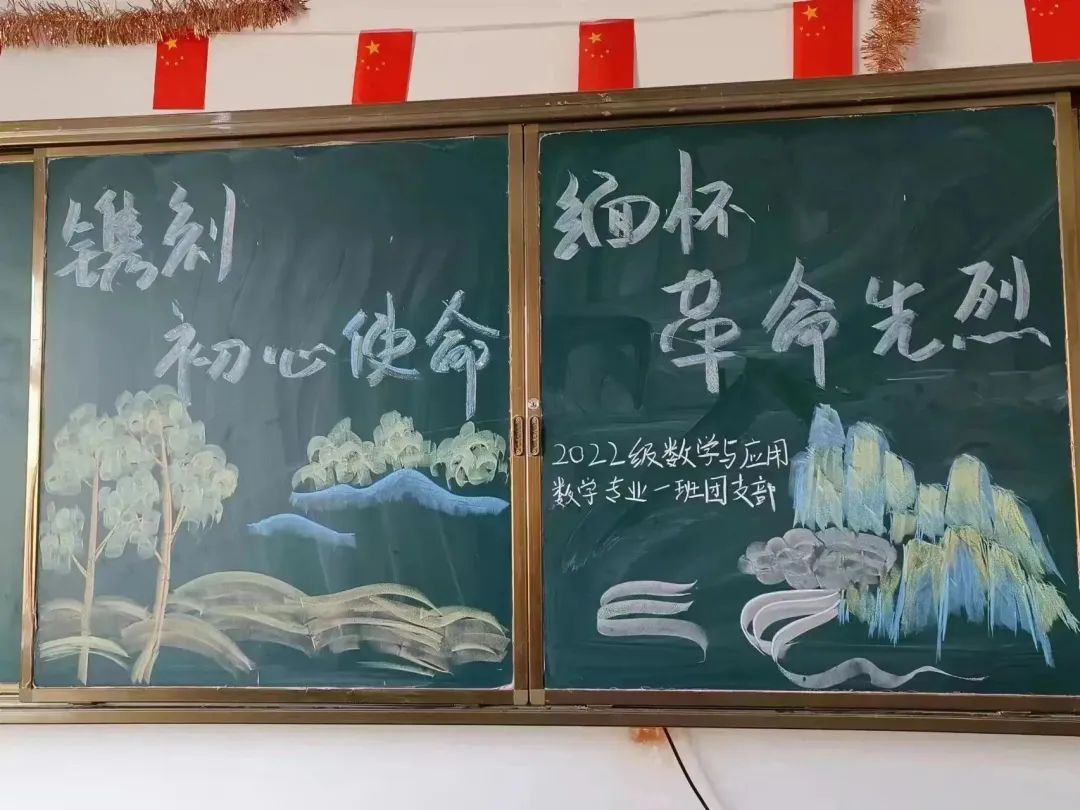 镌刻
初心使命
缅怀
革命先烈
2022级数学与应用
数学专业一班团支部